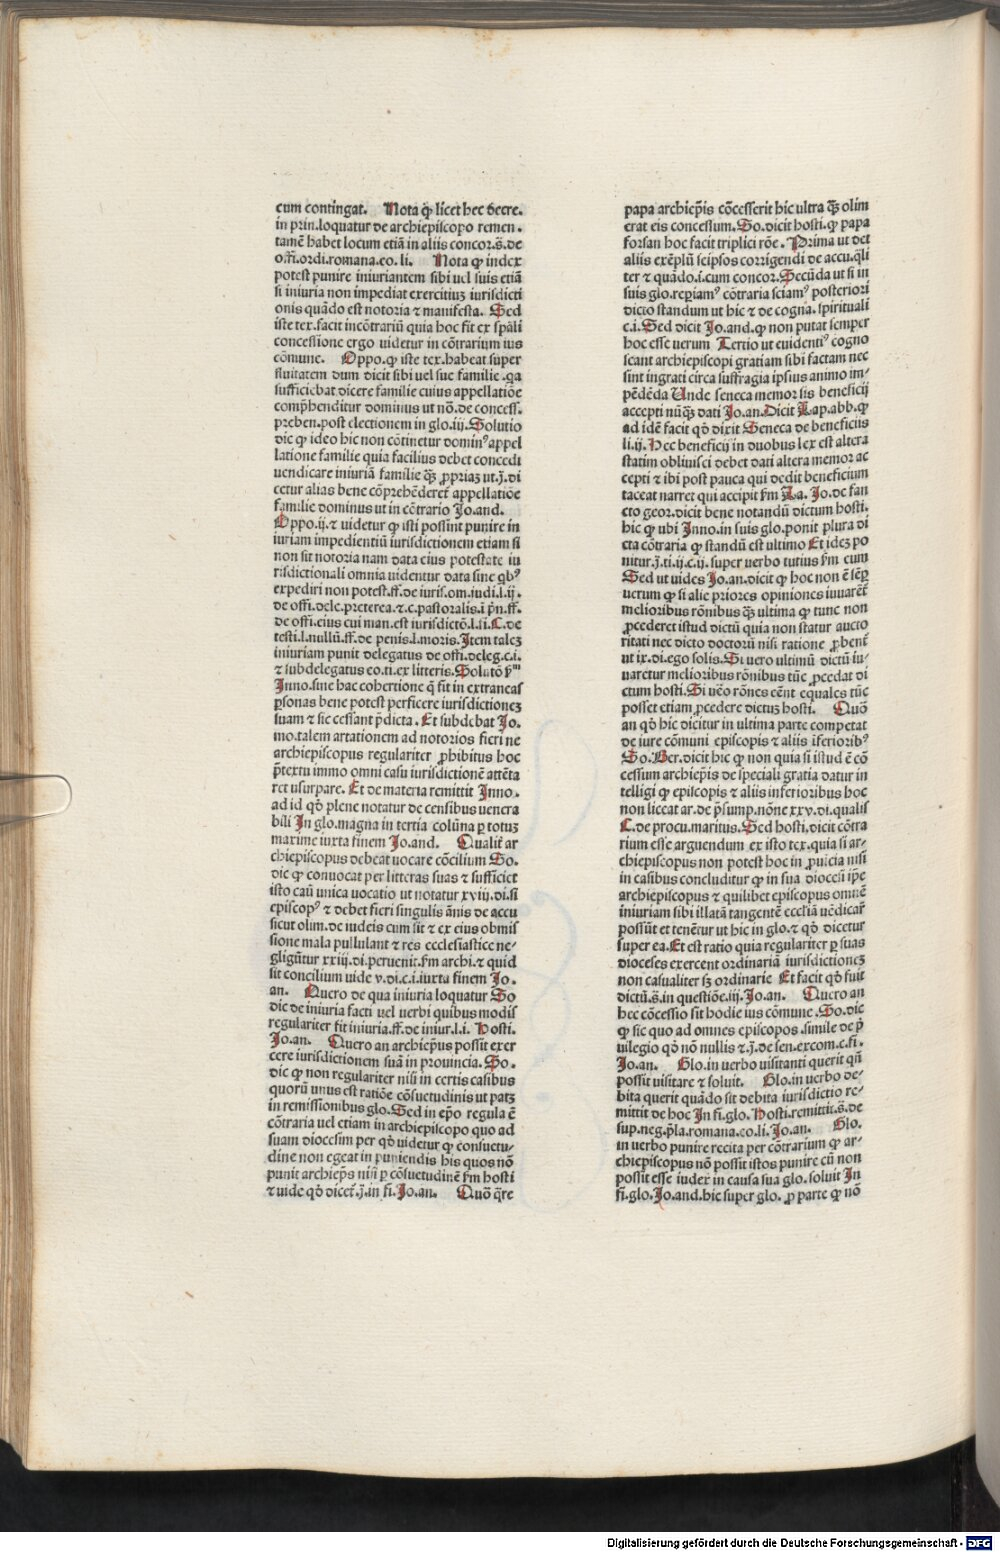 cum contingat. Nota ꝙ licet hec decre.
in prin.loquatur de archiepiscopo remen.
tamē habet locum etiā in aliis concor.s̄.de
offi.ordi.romana.eo.li. Nota ꝙ iudex
potest punire iniuriantem sibi uel suis etiā
si iniuria non impediat exercitiuꝫ iurisdicti
onis quādo est notoria ⁊ manifesta. Sed
iste tex.facit incōtrariū quia hoc fit ex spāli
concessione ergo videtur in cōtrarium ius
cōmune. Oppo.ꝙ iste tex.habeat super
fluitatem dum dicit sibi uel sue familie.qa
sufficiebat dicere familie cuius appellatiōe
comp̄henditur dominus ut nō.de concess.
preben.post electionem in glo.iij.Solutio
dic ꝙ ideo hic non cōtinetur dominꝰ appel
latione familie quia facilius debet concedi
uendicare iniuriā familie qꝫ̄ ꝓpriaꝫ ut.j̄.di
cetur alias bene cōprehēderet̄ appellatiōe
familie dominus ut in cōtrario Jo.and.
Oppo.ij.⁊ videtur ꝙ isti possint punire in
iuriam impedientiū iurisdictionem etiam si
non sit notoria nam data eius potestate iu
risdictionali omnia uidentur data sine qbꝰ
expediri non potest.ff.de iuris.om.iudi.l.ij.
de offi.dele.preterea.⁊.c.pastoralis.i p̄n.ff.
de offi.eius cui man.est iurisdictō.l.ii.C.de
testi.l.nullū.ff.de penis.l.moris.Item taleꝫ
iniuriam punit delegatus de offi.deleg.c.i.
⁊ subdelegatus eo.ti.ex litteris.Solutō ẜm
Inno.sine hac cohertione q̄ fit in extraneas
ꝑsonas bene potest perficere iurisdictioneꝫ
suam ⁊ sic cessant p̄dicta. Et subdebat Jo.
mo.talem artationem ad notorios fieri ne
archiepiscopus regulariter ꝓhibitus hoc
p̄textu immo omni casu iurisdictionē attēta
ret usurpare. Et de materia remittit Inno.
ad id qd̄ plene notatur de censibus uenera
bili In glo.magna in tertia colūna ꝑ totuꝫ
maxime iuxta finem Jo.and. Qualit̄ ar
chiepiscopus debeat uocare cōcilium So.
dic ꝙ conuocat per litteras suas ⁊ sufficiet
isto caū unica uocatio ut notatur xviij.di.si
episcopꝰ ⁊ debet fieri singulis ānis de accu
sicut olim.de iudeis cum sit ⁊ ex eius obmis
sione mala pullulant ⁊ res ecclesiastice ne⸗
gligūtur xxiij.di.peruenit.ẜm archi.⁊ quid
sit concilium uide v.di.c.i.iuxta finem Jo.
an. Quero de qua iniuria loquatur So
dic de iniuria facti uel uerbi quibus modis
regulariter fit iniuria.ff.de iniur.l.i. Hosti.
Jo.an. Quero an archiep̄us possit exer
cere iurisdictionem suā in prouincia. So.
dic ꝙ non regulariter nisi in certis casibus
quorū unus est ratiōe cōsuetudinis ut patꝫ
in remissionibus glo.Sed in ep̄o regula ē
cōtraria uel etiam in archiepiscopo quo ad
suam diocesim per qd̄ uidetur ꝙ consuetu⸗
dine non egeat in puniendis his quos nō
punit archiep̄s nisi ꝑ cōsuetudinē ẜm hosti
⁊ uide qd̄ dicet̄.j̄.in fi.Jo.an. Quō q̄re
papa archiep̄is cōcesserit hic ultra qꝫ̄ olim
erat eis concessum.So.dicit hosti.ꝙ papa
forsan hoc facit triplici rōe. Prima ut det
aliis exēplū seipsos corrigendi de accu.q̄li
ter ⁊ quādo.i.cum concor.Secūda ut si in
suis glo.reꝑiamꝰ cōtraria sciamꝰ posteriori
dicto standum ut hic ⁊ de cogna.spirituali
c.i.Sed dicit Jo.and.ꝙ non putat semper
hoc esse uerum Tertio ut euidentiꝰ cogno
scant archiepiscopi gratiam sibi factam nec
sint ingrati circa suffragia ipsius animo im⸗
pēdēda Unde seneca memor sis beneficij
accepti nūqꝫ̄ dati Jo.an.Dicit Lap.abb.ꝙ
ad idē facit qd̄ dixit Seneca de beneficiis
li.ij.Hec beneficij in duobus lex est altera
statim obliuisci debet dati altera memor ac
cepti ⁊ ibi post pauca qui dedit beneficium
taceat narret qui accipit ẜm La. Jo.de fan
cto geor.dicit bene notandū dictum hosti.
hic ꝙ ubi Inno.in suis glo.ponit plura di
cta cōtraria ꝙ standū est ultimo Et ideꝫ po
nitur.j̄.ti.ij.c.ij.super verbo tutius ẜm eum
Sed ut uides Jo.an.dicit ꝙ hoc non ē sēꝑ
uerum ꝙ si alie priores opiniones iuuarēt̄
melioribus rōnibus qꝫ̄ ultima ꝙ tunc non
ꝓcederet istud dictū quia non statur aucto
ritati nec dicto doctorū nisi ratione ꝓbent̄
ut ix.di.ego solis.Si uero ultimū dictū iu⸗
uaretur melioribus rōnibus tūc ꝓcedat di
ctum hosti.Si uēo rōnes cēnt equales tūc
posset etiam ꝓcedere dictuꝫ hosti. Quō
an qd̄ hic dicitur in ultima parte competat
de iure cōmuni episcopis ⁊ aliis īferioribꝰ
So.Ber.dicit hic ꝙ non quia si istud ē cō
cessium archiep̄is de speciali gratia datur in
telligi ꝙ episcopis ⁊ aliis inferioribus hoc
non liceat ar.de p̄sump.nōne xxv.di.qualis
C.de procu.maritus.Sed hosti.dicit cōtra
rium esse arguendum ex isto tex.quia si ar⸗
chiepiscopus non potest hoc in ꝓuīcia nisi
in casibus concluditur ꝙ in sua diocesi ip̄e
archiepiscopus ⁊ quilibet episcopus omnē
iniuriam sibi illatā tangentē eccliā uēdicar̄
possūt et tenētur ut hic in glo.⁊ qd̄ dicetur
super ea.Et est ratio quia regulariter ꝑ suas
dioceses exercent ordinariā iurisdictioneꝫ
non casualiter sꝫ ordinarie Et facit qd̄ fuit
dictū.s̄.in questiōe.iij.Jo.an. Quero an
hec cōcessio sit hodie ius cōmune.So.dic
ꝙ sic quo ad omnes episcopos.simile de p̄
uilegio qd̄ nō nullis ⁊.j̄.de sen.excom.c.fi.
Jo.an. Glo.in uerbo uisitanti querit qn̄
possit uisitare ⁊ soluit. Glo.in uerbo de⸗
bita querit quādo sit debita iurisdictio re⸗
mittit de hoc In fi.glo.Hosti.remittit.s̄.de
sup.neg.p̄la.romana.eo.li.Jo.an. Glo.
in uerbo punire recita per cōtrarium ꝙ ar⸗
chiepiscopus nō possit istos punire cū non
possit esse iudex in causa sua glo.soluit In
fi.glo.Jo.and.hic super glo. ꝓ parte ꝙ nō
Digitalisierung gefördert durch die Deutsche Forschungsgemeinschaft - DFG